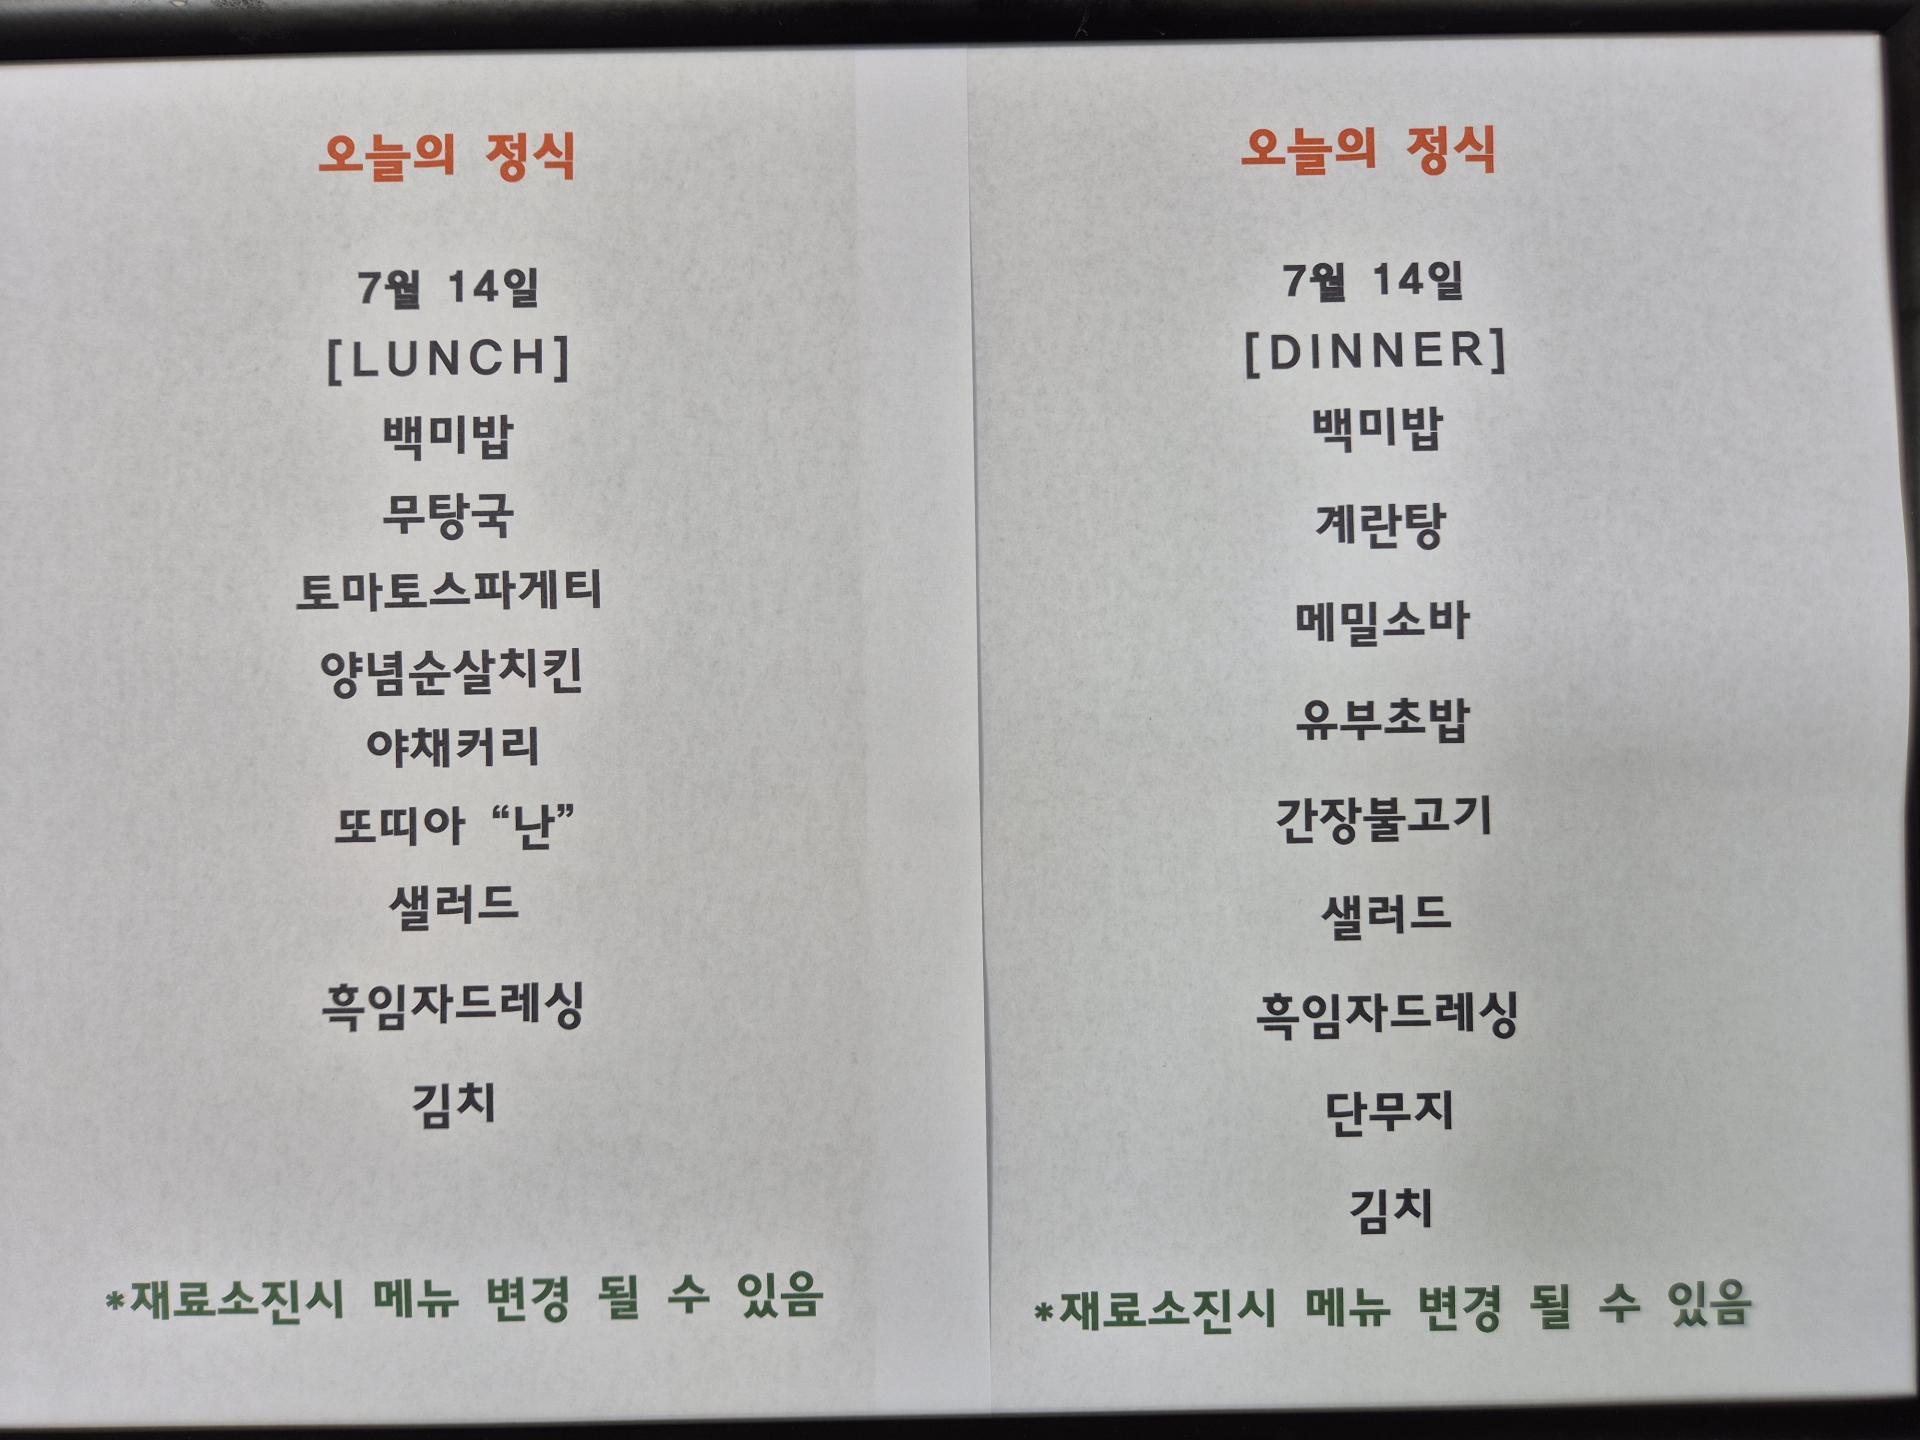 오늘의 정식
7월 14일
[LUNCH]
백미밥
무탕국
토마토스파게티
양념순살치킨
야채커리
또띠아 “난”
샐러드
흑임자드레싱
김치
*재료소진시 메뉴 변경 될 수 있음
오늘의 정식
7월 14일
[DINNER]
백미밥
계란탕
메밀소바
유부초밥
간장불고기
샐러드
흑임자드레싱
단무지
김치
*재료소진시 메뉴 변경 될 수 있음